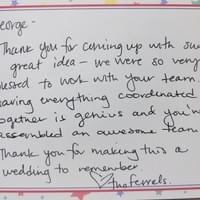 eorge -
Thank you for coming up with su
great idea - we were so very
uested to work with your team.
aving everything coordinated
ogether is genius and you'v
ssembled an awesome team
Thank you for making this a
wedding to remember.